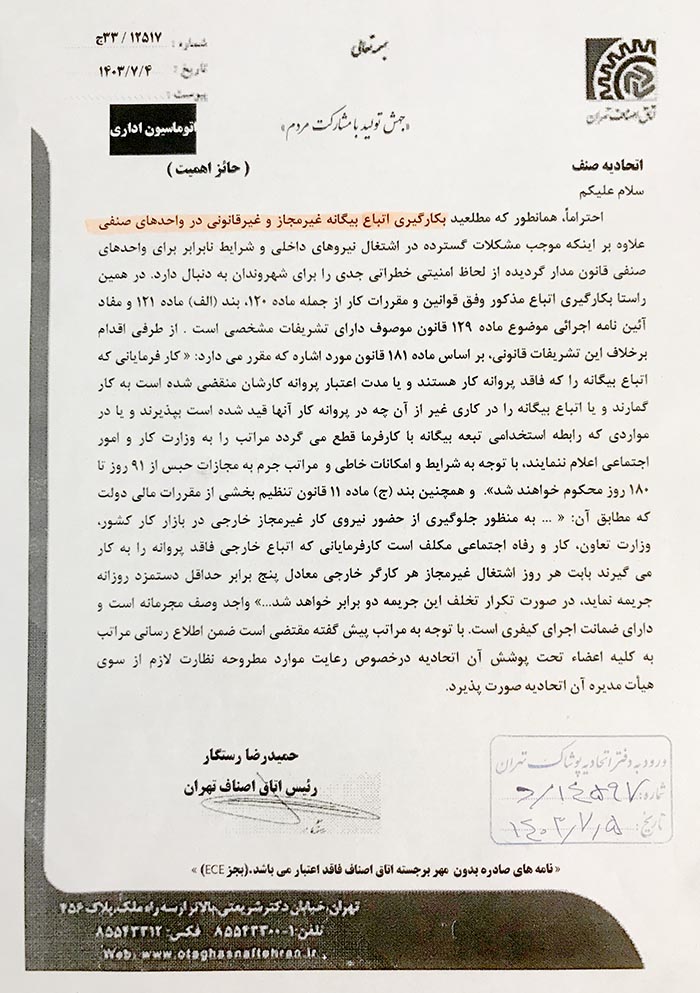 بسمه تعالی
شماره : ۱۲۵۱۷ / ۳۳ج
تاریخ : ۱۴۰۳/۷/۴
پیوست :
اتاق اصناف تهران
اتوماسیون اداری
«جهش تولید با مشارکت مردم»
اتحادیه صنف
( حائز اهمیت )
سلام علیکم
احتراماً، همانطور که مطلعید بکارگیری اتباع بیگانه غیرمجاز و غیرقانونی در واحدهای صنفی
علاوه بر اینکه موجب مشکلات گسترده در اشتغال نیروهای داخلی و شرایط نابرابر برای واحدهای
صنفی قانون مدار گردیده از لحاظ امنیتی خطراتی جدی را برای شهروندان به دنبال دارد. در همین
راستا بکارگیری اتباع مذکور وفق قوانین و مقررات کار از جمله ماده ۱۲۰، بند (الف) ماده ۱۲۱ و مفاد
آئین نامه اجرائی موضوع ماده ۱۲۹ قانون موصوف دارای تشریفات مشخصی است . از طرفی اقدام
برخلاف این تشریفات قانونی، بر اساس ماده ۱۸۱ قانون مورد اشاره که مقرر می دارد: « کار فرمایانی که
اتباع بیگانه را که فاقد پروانه کار هستند و یا مدت اعتبار پروانه کارشان منقضی شده است به کار
گمارند و یا اتباع بیگانه را در کاری غیر از آن چه در پروانه کار آنها قید شده است بپذیرند و یا در
مواردی که رابطه استخدامی تبعه بیگانه با کارفرما قطع می گردد مراتب را به وزارت کار و امور
اجتماعی اعلام ننمایند، با توجه به شرایط و امکانات خاطی و مراتب جرم به مجازات حبس از ۹۱ روز تا
۱۸۰ روز محکوم خواهند شد». و همچنین بند (ج) ماده ۱۱ قانون تنظیم بخشی از مقررات مالی دولت
که مطابق آن: « ... به منظور جلوگیری از حضور نیروی کار غیرمجاز خارجی در بازار کار کشور،
وزارت تعاون، کار و رفاه اجتماعی مکلف است کارفرمایانی که اتباع خارجی فاقد پروانه را به کار
می گیرند بابت هر روز اشتغال غیرمجاز هر کارگر خارجی معادل پنج برابر حداقل دستمزد روزانه
جریمه نماید، در صورت تکرار تخلف این جریمه دو برابر خواهد شد...» واجد وصف مجرمانه است و
دارای ضمانت اجرای کیفری است. با توجه به مراتب پیش گفته مقتضی است ضمن اطلاع رسانی مراتب
به کلیه اعضاء تحت پوشش آن اتحادیه درخصوص رعایت موارد مطروحه نظارت لازم از سوی
هیأت مدیره آن اتحادیه صورت پذیرد.
حمیدرضا رستگار
رئیس اتاق اصناف تهران
ورود به دفتر اتحادیه پوشاک تهران
شماره : ۱۴۵۹۷/د
تاریخ : ۱۴۰۳،۷،۵
« نامه های صادره بدون مهر برجسته اتاق اصناف فاقد اعتبار می باشد.(بجز ECE) »
تهران، خیابان دکتر شریعتی، بالاتر از سه راه ملک، پلاک ۴۵۶
تلفن: ۱-۸۵۵۴۳۳۰۰ فکس: ۸۵۵۴۳۳۱۲
Web: www.otaghasnaftehran.ir